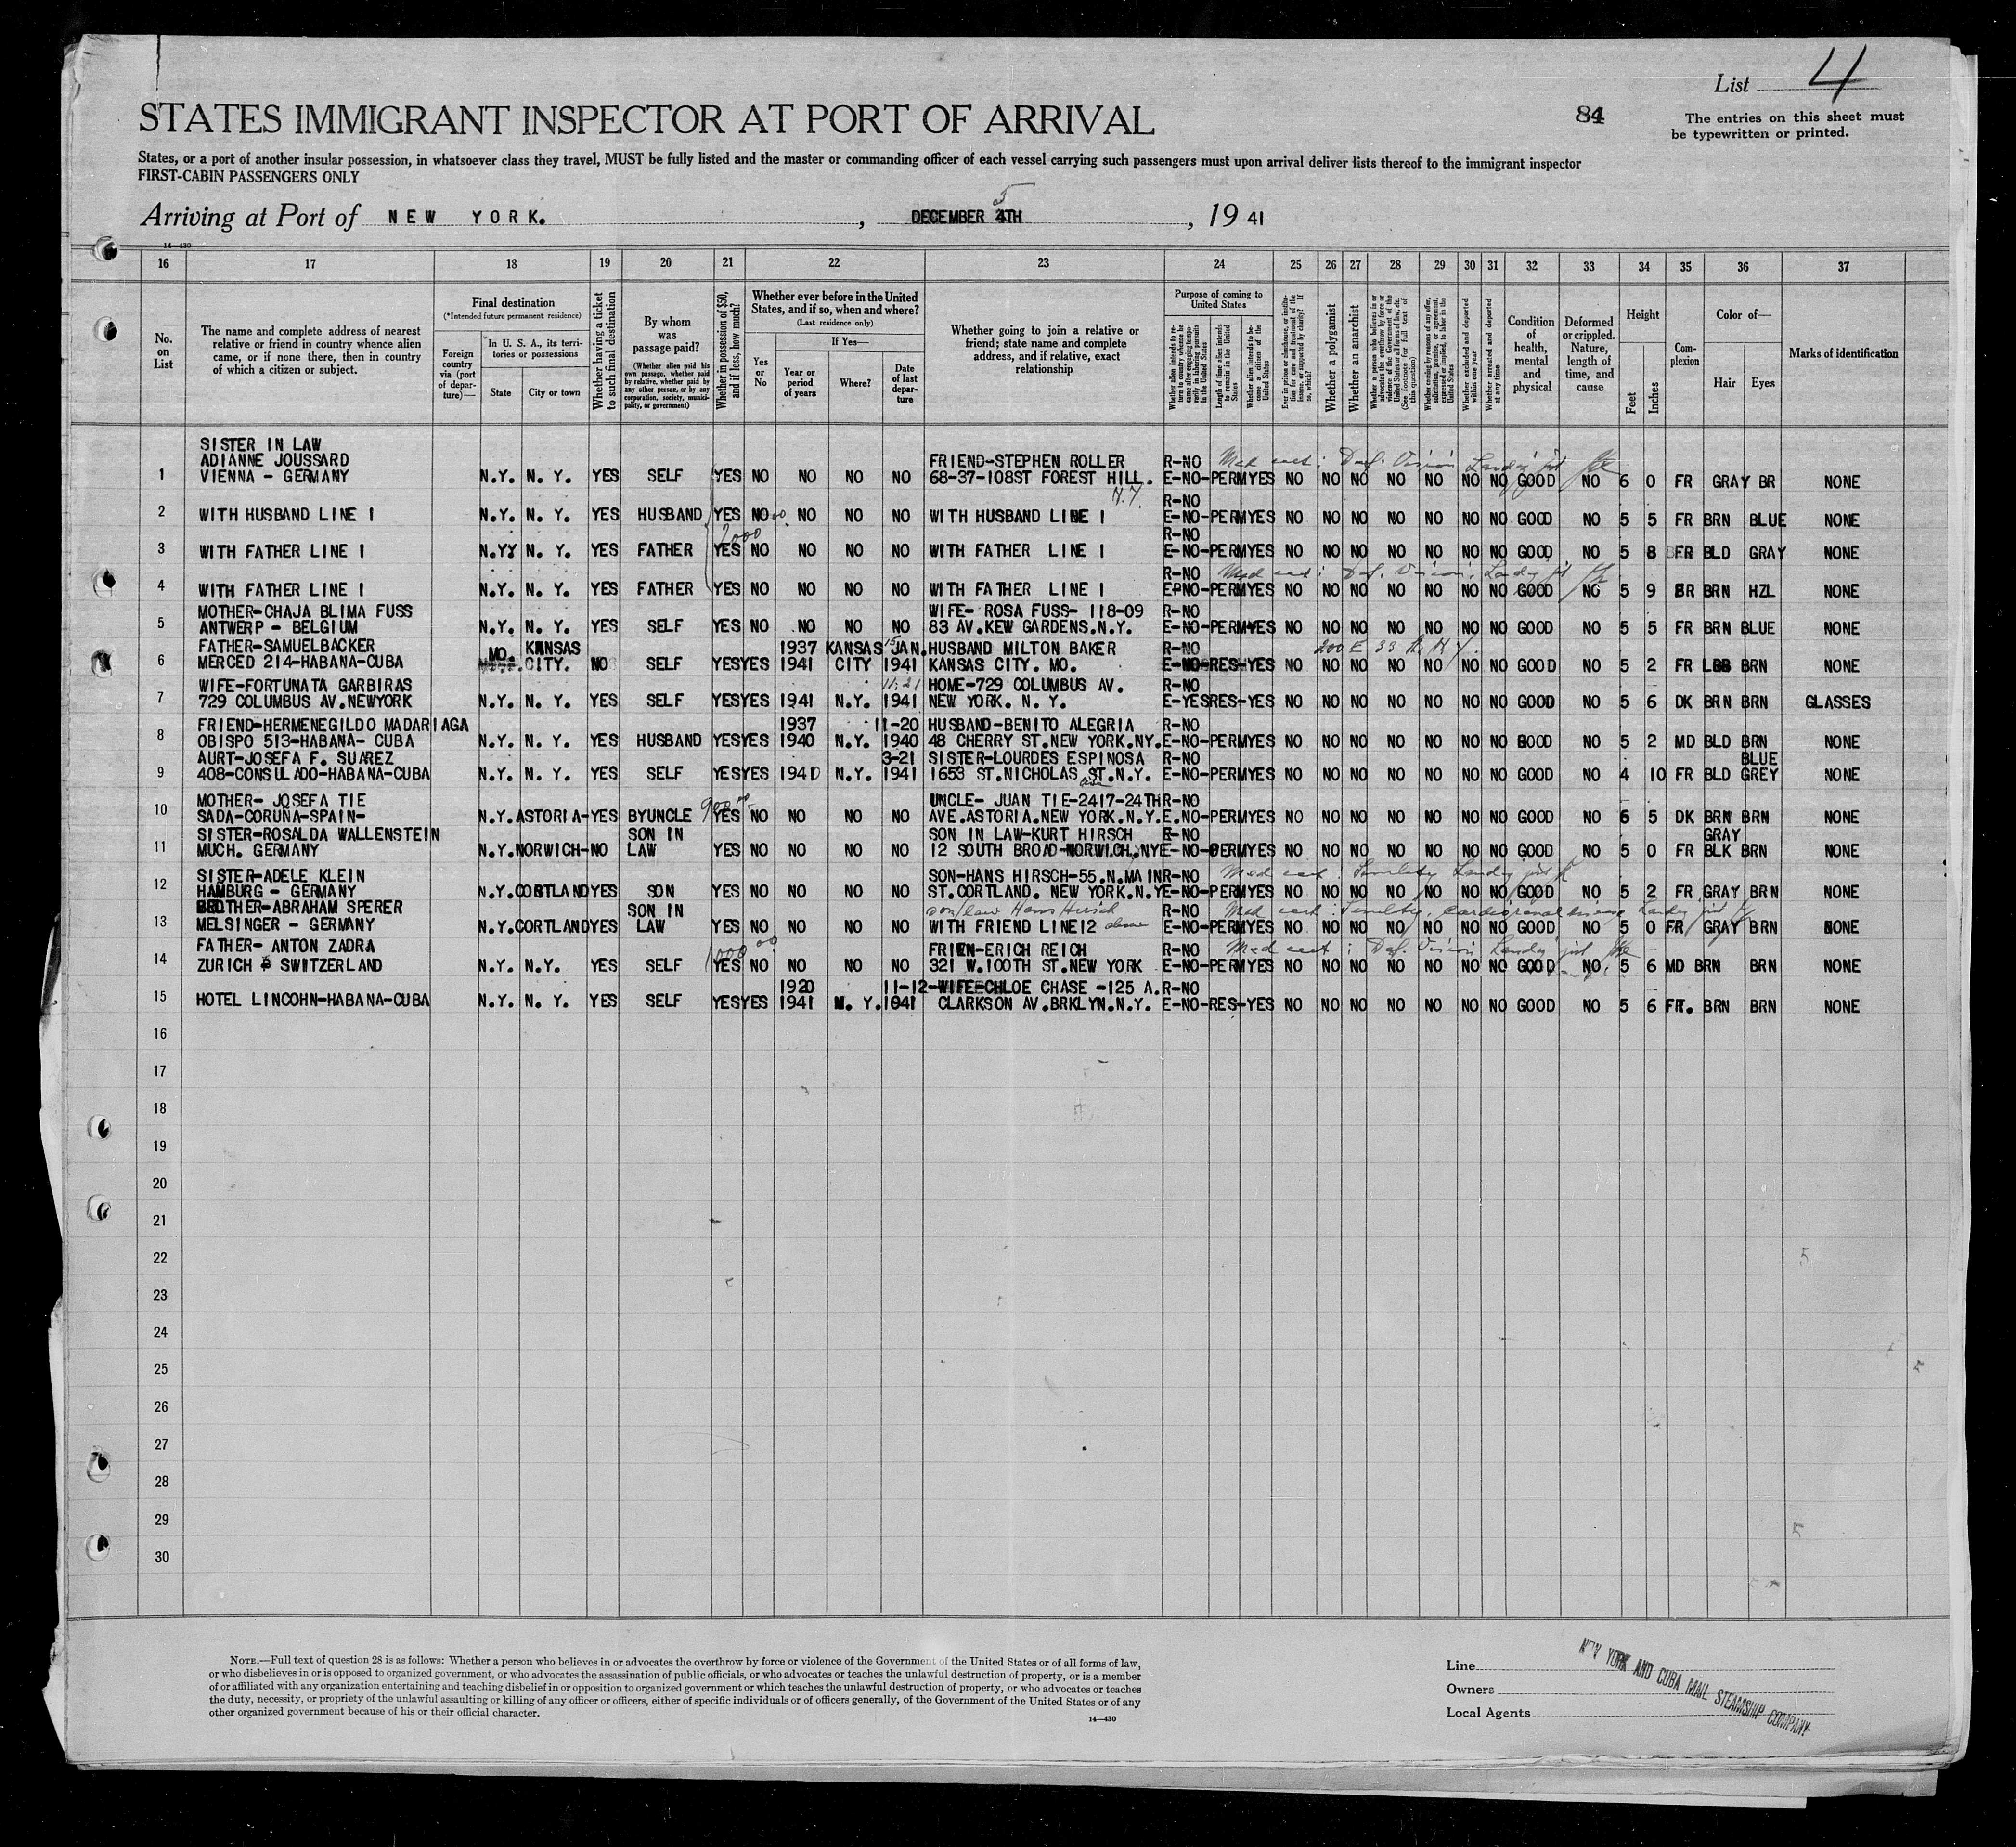 List 4
STATES IMMIGRANT INSPECTOR AT PORT OF ARRIVAL
84
The entries on this sheet must
be typewritten or printed.
States, or a port of another insular possession, in whatsoever class they travel, MUST be fully listed and the master or commanding officer of each vessel carrying such passengers must upon arrival deliver lists thereof to the immigrant inspector
FIRST-CABIN PASSENGERS ONLY
Arriving at Port of NEW YORK. , DECEMBER 5TH , 1941
14—430
16 17 18 19 20 21 22 23 24 25 26 27 28 29 30 31 32 33 34 35 36 37
No. on List
The name and complete address of nearest relative or friend in country whence alien came, or if none there, then in country of which a citizen or subject.
Final destination
(*Intended future permanent residence)
Foreign country via (port of departure)—
In U. S. A., its territories or possessions
State
City or town
Whether having a ticket to such final destination
By whom was passage paid?
(Whether alien paid his own passage, whether paid by relative, whether paid by any other person, or by any corporation, society, municipality, or government)
Whether in possession of $50, and if less, how much?
Whether ever before in the United States, and if so, when and where?
(Last residence only)
Yes or No
If Yes—
Year or period of years
Where?
Date of last departure
Whether going to join a relative or friend; state name and complete address, and if relative, exact relationship
Purpose of coming to United States
Whether alien intends to return to country whence he came after engaging temporarily in laboring pursuits in the United States
Length of time alien intends to remain in the United States
Whether alien intends to become a citizen of the United States
Ever in prison or almshouse, or institution for care and treatment of the insane, or supported by charity? If so, which?
Whether a polygamist
Whether an anarchist
Whether a person who believes in or advocates the overthrow by force or violence of the Government of the United States or all forms of law, etc. (See footnote for full text of this question)
Whether coming by reasons of any offer, solicitation, promise, or agreement, expressed or implied, to labor in the United States
Whether excluded and deported within one year
Whether arrested and deported at any time
Condition of health, mental and physical
Deformed or crippled. Nature, length of time, and cause
Height
Feet
Inches
Complexion
Color of—
Hair
Eyes
Marks of identification
SISTER IN LAW
ADIANNE JOUSSARD FRIEND-STEPHEN ROLLER R-NO Med cert: Def. Vision Landing
1 VIENNA - GERMANY N.Y. N. Y. YES SELF YES NO NO NO NO 68-37-108ST FOREST HILL. N.Y. E-NO-PERM YES NO NO NO NO NO NO NO GOOD NO 6 0 FR GRAY BR NONE
R-NO
2 WITH HUSBAND LINE 1 N.Y. N. Y. YES HUSBAND YES NO NO NO NO WITH HUSBAND LINE 1 E-NO-PERM YES NO NO NO NO NO NO NO GOOD NO 5 5 FR BRN BLUE NONE
2000 00 R-NO
3 WITH FATHER LINE 1 N.YY N. Y. YES FATHER YES NO NO NO NO WITH FATHER LINE 1 E-NO-PERM YES NO NO NO NO NO NO NO GOOD NO 5 8 FR BLD GRAY NONE
R-NO Med cert: Def. Vision, Landing
4 WITH FATHER LINE 1 N.Y. N. Y. YES FATHER YES NO NO NO NO WITH FATHER LINE 1 E-NO-PERM YES NO NO NO NO NO NO NO GOOD NO 5 9 BR BRN HZL NONE
MOTHER-CHAJA BLIMA FUSS WIFE- ROSA FUSS- 118-09 R-NO
5 ANTWERP - BELGIUM N.Y. N. Y. YES SELF YES NO NO NO NO 83 AV.KEW GARDENS.N.Y. E-NO-PERM YES NO NO NO NO NO NO NO GOOD NO 5 5 FR BRN BLUE NONE
FATHER-SAMUELBACKER MO. KANSAS 1937 KANSAS 15 JAN. HUSBAND MILTON BAKER R-NO 200 E 33 St. N.Y.
6 MERCED 214-HABANA-CUBA CITY. NO SELF YES YES 1941 CITY 1941 KANSAS CITY. MO. E-NO-RES-YES NO NO NO NO NO NO NO GOOD NO 5 2 FR BRN NONE
WIFE-FORTUNATA GARBIRAS 11-21 HOME-729 COLUMBUS AV. R-NO
7 729 COLUMBUS AV.NEWYORK N.Y. N. Y. YES SELF YES YES 1941 N.Y. 1941 NEW YORK. N. Y. E-YES RES-YES NO NO NO NO NO NO NO GOOD NO 5 6 DK BRN BRN GLASSES
FRIEND-HERMENEGILDO MADARIAGA 1937 11-20 HUSBAND-BENITO ALEGRIA R-NO
8 OBISPO 513-HABANA- CUBA N.Y. N. Y. YES HUSBAND YES YES 1940 N.Y. 1940 48 CHERRY ST.NEW YORK.NY. E-NO-PERM YES NO NO NO NO NO NO NO GOOD NO 5 2 MD BLD BRN NONE
AURT-JOSEFA F. SUAREZ 3-21 SISTER-LOURDES ESPINOSA R-NO BLUE
9 408-CONSULADO-HABANA-CUBA N.Y. N. Y. YES SELF YES YES 1941 N.Y. 1941 1653 ST.NICHOLAS ST.N.Y. ave E-NO-PERM YES NO NO NO NO NO NO NO GOOD NO 4 10 FR BLD GREY NONE
MOTHER- JOSEFA TIE 900 00 UNCLE- JUAN TIE-2417-24TH R-NO
10 SADA-CORUÑA-SPAIN- N.Y. ASTORIA- YES BYUNCLE YES NO NO NO NO AVE.ASTORIA.NEW YORK.N.Y. E.NO-PERM YES NO NO NO NO NO NO NO GOOD NO 6 5 DK BRN BRN NONE
SISTER-ROSALDA WALLENSTEIN SON IN SON IN LAW-KURT HIRSCH R-NO GRAY
11 MUCH. GERMANY N.Y. NORWICH- NO LAW YES NO NO NO NO 12 SOUTH BROAD-NORWICH.NY E-NO-PERM YES NO NO NO NO NO NO NO GOOD NO 5 0 FR BLK BRN NONE
SISTER-ADELE KLEIN SON-HANS HIRSCH-55.N.MAIN R-NO Med cert: Senility Landing
12 HAMBURG - GERMANY N.Y. CORTLAND YES SON YES NO NO NO NO ST.CORTLAND. NEW YORK.N.Y E-NO-PERM YES NO NO NO NO NO NO NO GOOD NO 5 2 FR GRAY BRN NONE
BROTHER-ABRAHAM SPERER SON IN son/law Hans Hirsch R-NO Med cert: Senility, cardiorenal disease Landing
13 MELSINGER - GERMANY N.Y. CORTLAND YES LAW YES NO NO NO NO WITH FRIEND LINE12 above E-NO-PERM YES NO NO NO NO NO NO NO GOOD NO 5 0 FR GRAY BRN NONE
FATHER- ANTON ZADRA 1000 00 FRIEN-ERICH REICH R-NO Med cert: Def. Vision Landing
14 ZURICH SWITZERLAND N.Y. N.Y. YES SELF YES NO NO NO NO 321 W.100TH ST.NEW YORK E-NO-PERM YES NO NO NO NO NO NO NO GOOD NO 5 6 MD BRN BRN NONE
1920 11-12-WIFE-CHLOE CHASE -125 A. R-NO
15 HOTEL LINCOHN-HABANA-CUBA N.Y. N. Y. YES SELF YES YES 1941 N. Y. 1941 CLARKSON AV.BRKLYN.N.Y. E-NO-RES-YES NO NO NO NO NO NO NO GOOD NO 5 6 FR. BRN BRN NONE
16
17
18
19
20
21
22
23
24
25
26
27
28
29
30
NOTE.—Full text of question 28 is as follows: Whether a person who believes in or advocates the overthrow by force or violence of the Government of the United States or of all forms of law,
or who disbelieves in or is opposed to organized government, or who advocates the assassination of public officials, or who advocates or teaches the unlawful destruction of property, or is a member
of or affiliated with any organization entertaining and teaching disbelief in or opposition to organized government or which teaches the unlawful destruction of property, or who advocates or teaches
the duty, necessity, or propriety of the unlawful assaulting or killing of any officer or officers, either of specific individuals or of officers generally, of the Government of the United States or of any
other organized government because of his or their official character.
14—430
Line
Owners
Local Agents
NEW YORK AND CUBA MAIL STEAMSHIP COMPANY